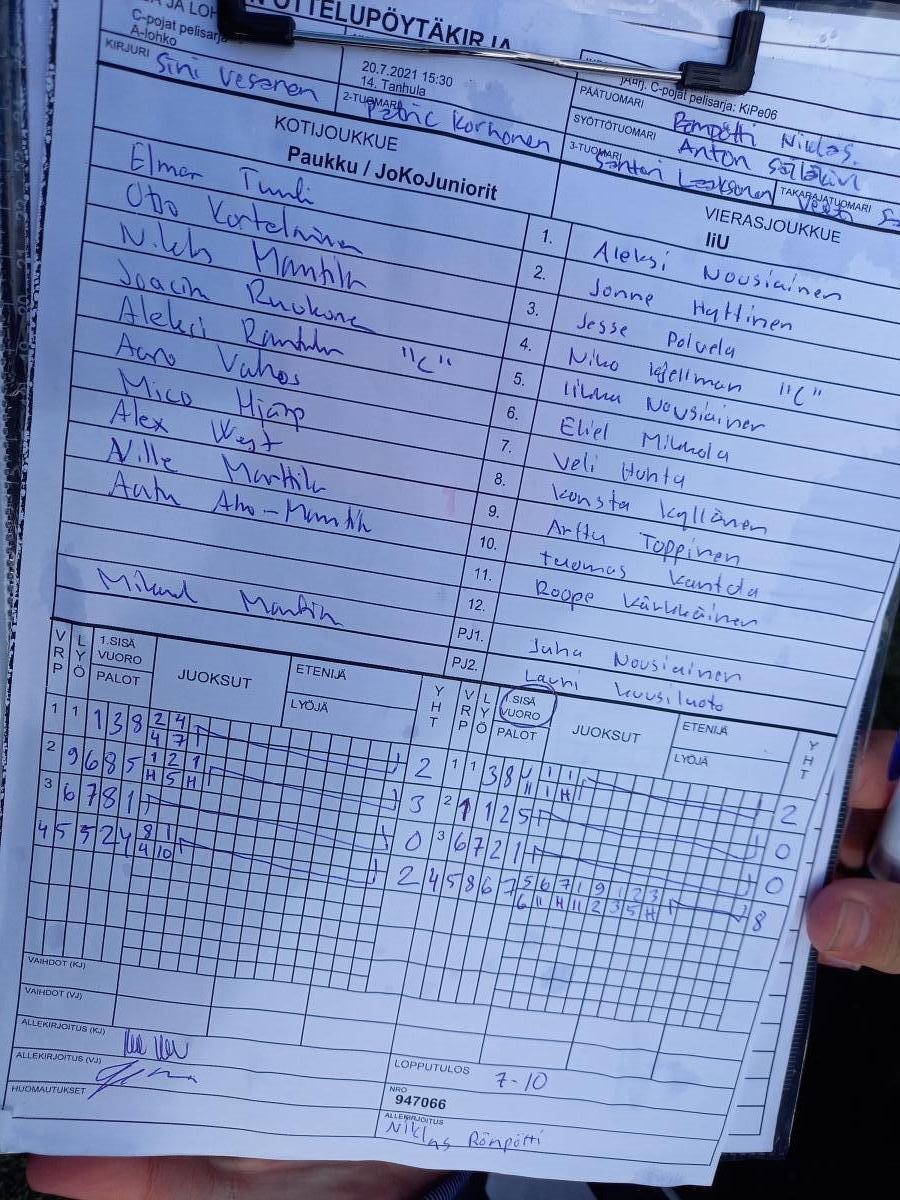 OTTELUPÖYTÄKIRJA
C-pojat pelisarja
A-lohko
20.7.2021 15:30
14. Tanhula
C-pojat pelisarja: KiPe06
KIRJURI Sini Vesanen
2-TUOMARI Patric Korhonen
PÄÄTUOMARI Niklas
SYÖTTÖTUOMARI Anton
3-TUOMARI Santeri Laaksonen
TAKARAJATUOMARI
KOTIJOUKKUE
Paukku / JoKoJuniorit
VIERASJOUKKUE
IiU
Elmer Tuuli 1. Aleksi Nousiainen
Otto 2. Jonne Hyttinen
Mantila 3. Jesse Polvela
4. Niko Kjellman "C"
Aleksi "C" 5. Iikka Nousiainen
Aaro 6. Eliel Mikkola
Mico 7. Veli Huhta
Alex West 8. Konsta Kyllönen
Ville Marttila 9. Arttu Toppinen
10. Tuomas Kantola
11. Roope Kärkkäinen
12.
PJ1. Juha Nousiainen
PJ2. Lauri Kuusiluoto
VRP LYÖ 1.SISÄ VUORO PALOT JUOKSUT ETENIJÄ LYÖJÄ YHT
VRP LYÖ 1.SISÄ VUORO PALOT JUOKSUT ETENIJÄ LYÖJÄ YHT
1 1 1 3 8 2 4 2
4 7
2 9 6 8 5 1 2 1 3
H 5 H
3 6 7 8 1 0
4 5 3 2 4 8 1 2
4 10
1 1 3 8 2
2 1 1 2 5 0
3 6 7 2 1 0
4 5 8 6 7 5 6 7 1 9 1 2 3 8
6 11 H 11 2 3 5 H
VAIHDOT (KJ)
VAIHDOT (VJ)
ALLEKIRJOITUS (KJ)
ALLEKIRJOITUS (VJ)
HUOMAUTUKSET
LOPPUTULOS 7-10
NRO
947066
ALLEKIRJOITUS
Niklas Römpötti